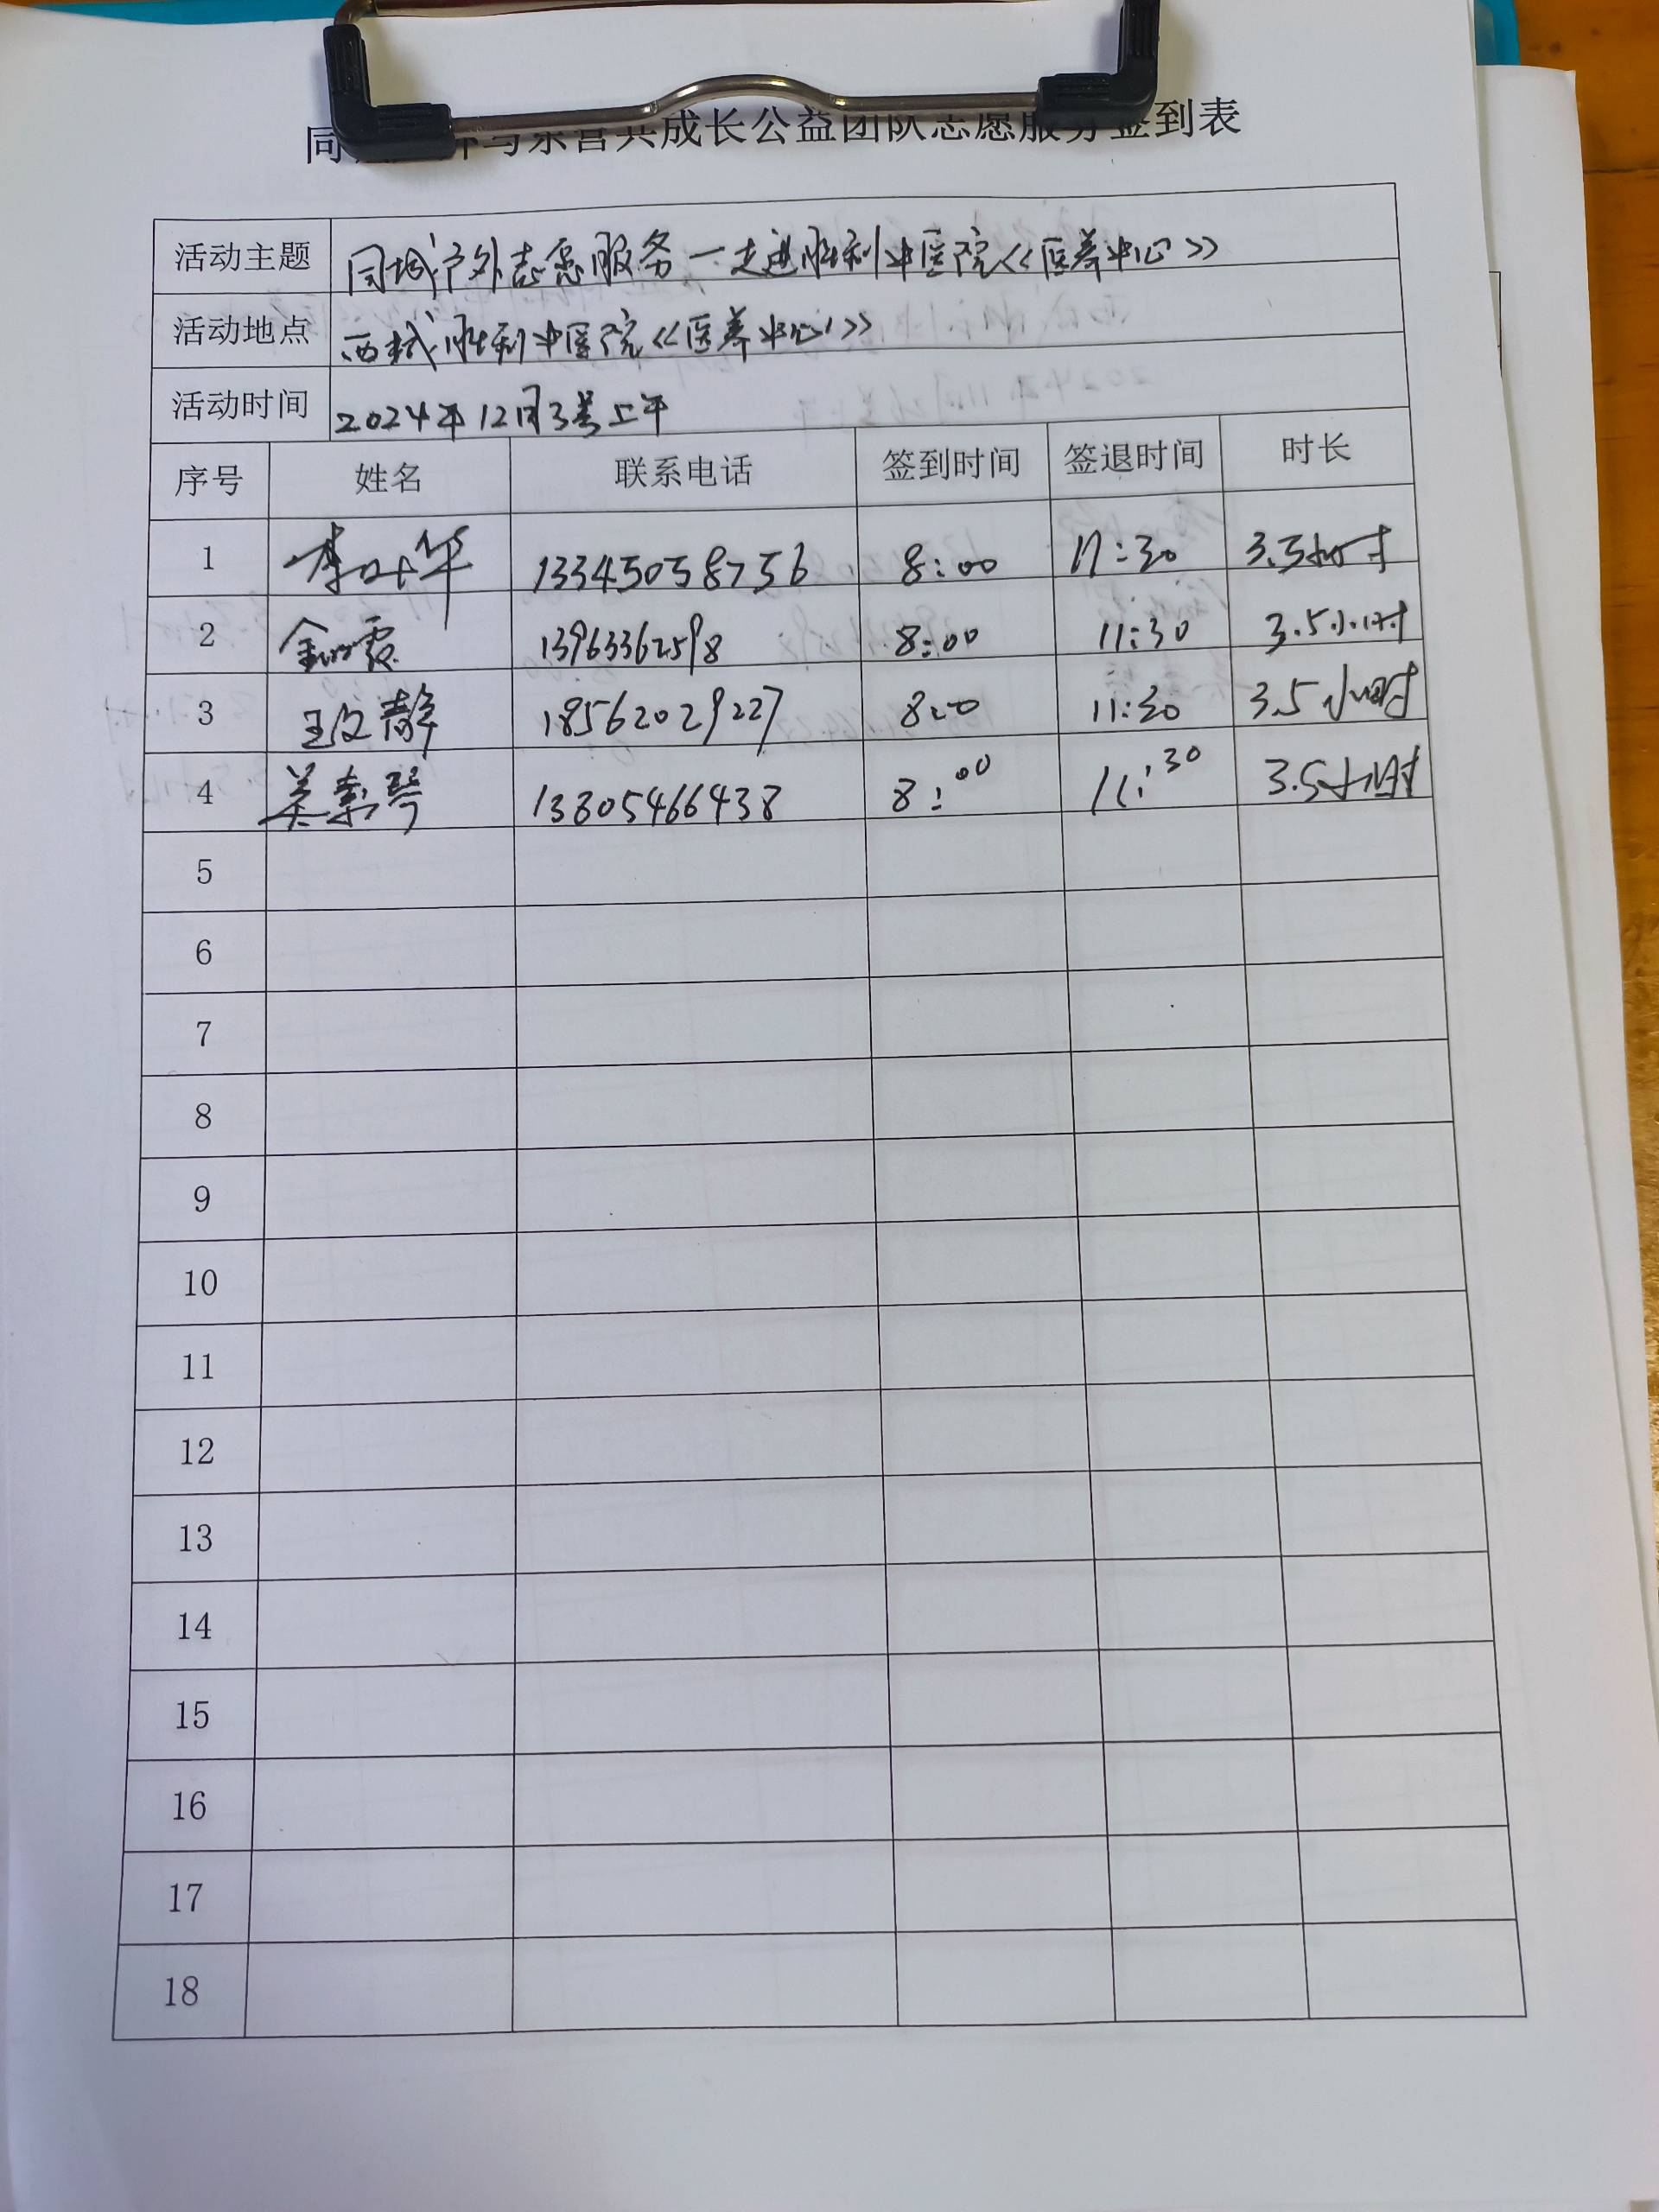 同与东营共成长公益团队志愿服务签到表
活动主题 同城户外志愿服务一走进胜利中医院《医养中心》
活动地点 西城胜利中医院《医养中心》
活动时间 2024年12月3号上午
序号 姓名 联系电话 签到时间 签退时间 时长
1 李叶华 13345058756 8:00 11:30 3.5小时
2 霞 13963362598 8:00 11:30 3.5小时
3 王文静 18562029227 8:00 11:30 3.5小时
4 吴素琴 13805466438 8:00 11:30 3.5小时
5
6
7
8
9
10
11
12
13
14
15
16
17
18